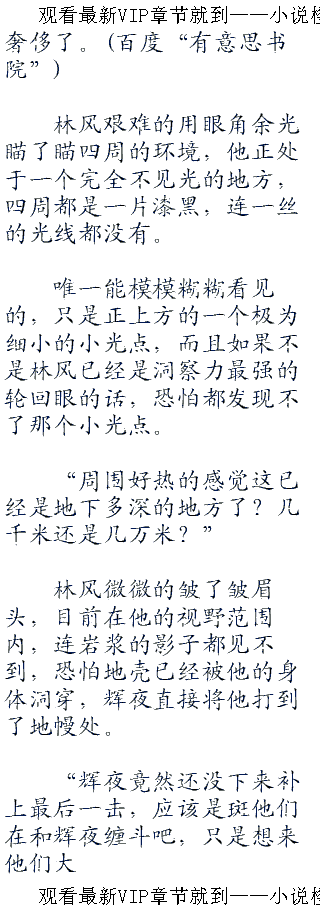 观看最新VIP章节就到——小说
奢侈了。(百度“有意思书
院”)
林风艰难的用眼角余光
瞄了瞄四周的环境，他正处
于一个完全不见光的地方，
四周都是一片漆黑，连一丝
的光线都没有。
唯一能模模糊糊看见
的，只是正上方的一个极为
细小的小光点，而且如果不
是林风已经是洞察力最强的
轮回眼的话，恐怕都发现不
了那个小光点。
“周围好热的感觉这已
经是地下多深的地方了？几
千米还是几万米？”
林风微微的皱了皱眉
头，目前在他的视野范围
内，连岩浆的影子都见不
到，恐怕地壳已经被他的身
体洞穿，辉夜直接将他打到
了地幔处。
“辉夜竟然还没下来补
上最后一击，应该是斑他们
在和辉夜缠斗吧，只是想来
他们大
观看最新VIP章节就到——小说